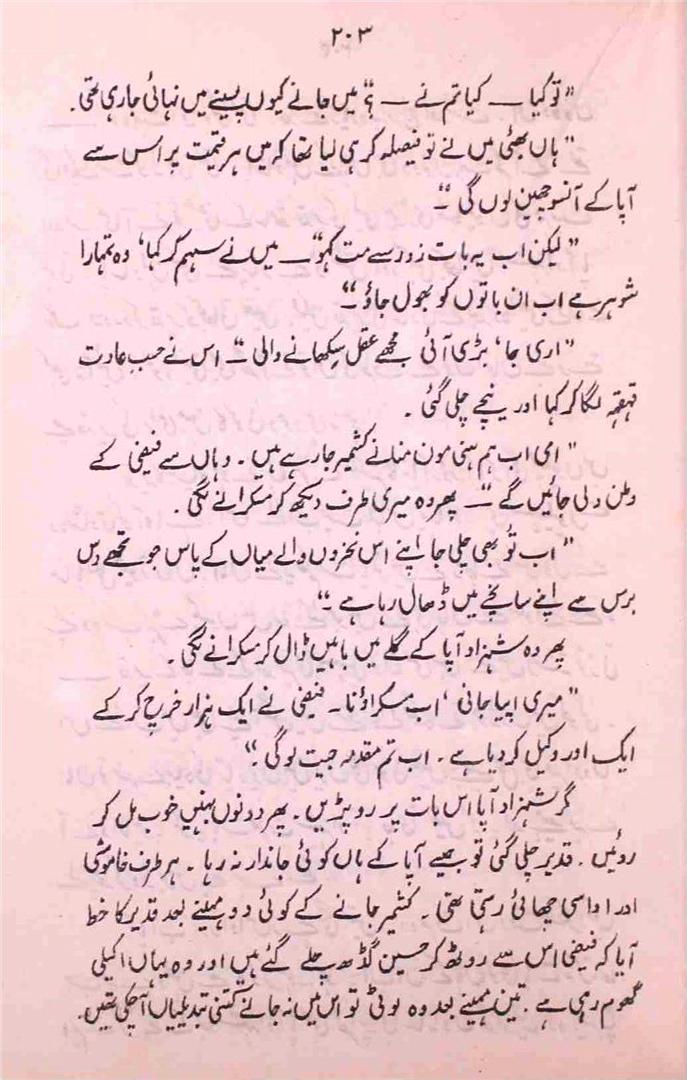 ۲۰۳
"تو کیا ــ کیا تم نے ــ ؟" میں جانے کیوں پسینے میں نہائی جا رہی تھی۔
"ہاں بھئی میں نے تو فیصلہ کر ہی لیا تھا کہ میں ہر قیمت پر اس سے
آپا کے آنسو چھین لوں گی"۔
"لیکن اب یہ بات زور سے مت کہو"ــ میں نے سہم کر کہا، وہ تمہارا
شوہر ہے اب ان باتوں کو بھول جاؤ"ــ
"اری جا، بڑی آئی مجھے عقل سکھانے والی"ــ اس نے حسبِ عادت
قہقہہ لگا کر کہا اور نیچے چلی گئی۔
"امی اب ہم ہنی مون منانے کشمیر جا رہے ہیں۔ وہاں سے فیضی کے
وطن دلی جائیں گے"ــ پھر وہ میری طرف دیکھ کر مسکرانے لگی۔
"اب تُو بھی چلی جا اپنے اس نخروں والے میاں کے پاس جو تجھے دس
برس سے اپنے سانچے میں ڈھال رہا ہے"۔
پھر وہ شہزاد آپا کے گلے میں باہیں ڈال کر مسکرانے لگی۔
"میری اپیا جانی، اب مسکراؤ نا۔ فیضی نے ایک ہزار خرچ کر کے
ایک اور وکیل کر دیا ہے۔ اب تم مقدمہ جیت لو گی۔"
گر شہزاد آپا اس بات پر رو پڑیں۔ پھر دونوں بہنیں خوب مل کر
روئیں۔ قدیر چلی گئی تو جیسے آپا کے ہاں کوئی جاندار نہ رہا۔ ہر طرف خاموشی
اور اداسی چھائی رہتی تھی۔ کشمیر جانے کے کوئی دو مہینے بعد قدیر کا خط
آیا کہ فیضی اس سے روٹھ کر حسین گڈھ چلے گئے ہیں اور وہ یہاں اکیلی
گھوم رہی ہے۔ تین مہینے بعد وہ لوٹی تو اس میں نہ جانے کتنی تبدیلیاں آ چکی تھیں۔